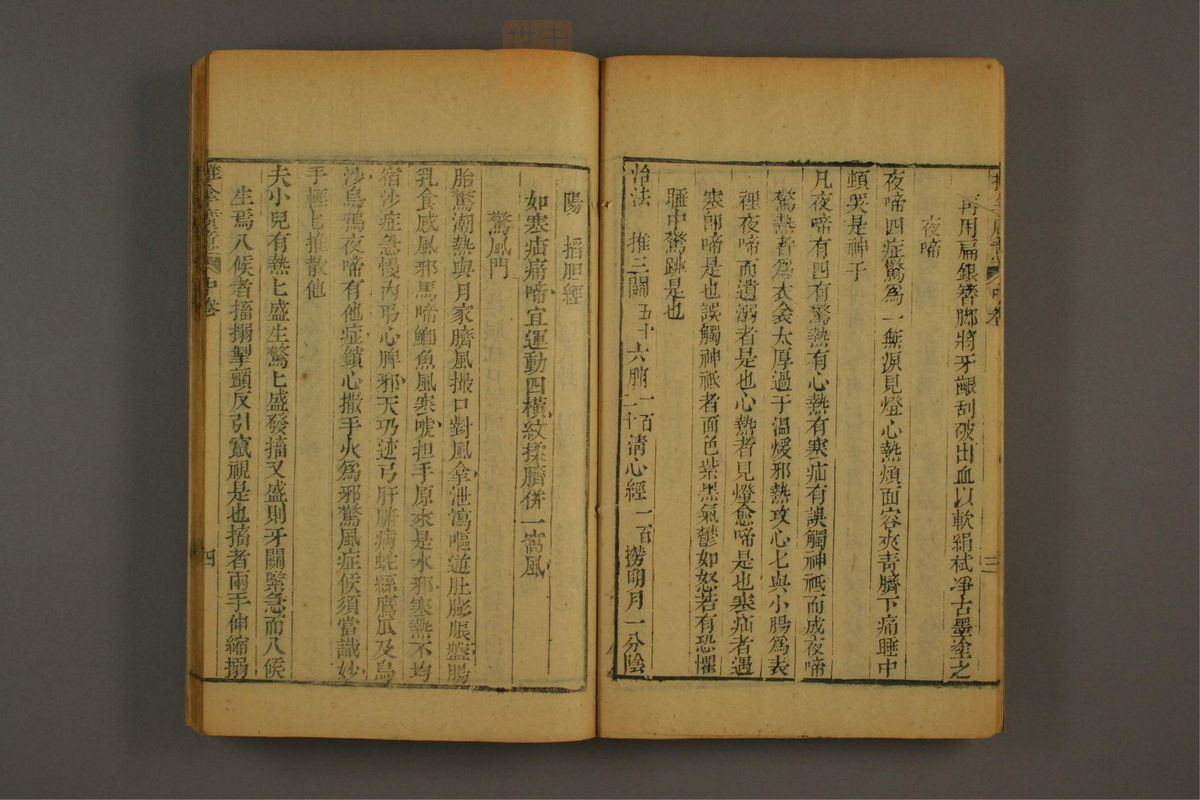 再用扁銀簪脚將牙齦刮破出血以軟絹拭净古墨塗之
夜啼
夜啼四症驚爲一無淚見燈心熱煩面容夾青臍下痛睡中
頓哭是神子
凡夜啼有四有驚熱有心熱有寒疝有誤觸神祗而成夜啼
驚熱者爲衣衾太厚過于温煖邪熱攻心匕與小腸爲表
裡夜啼而遺溺者是也心熱者見燈愈啼是也寒疝者遇
寒即啼是也誤觸神祗者面色紫黑氣鬱如怒若有恐懼
睡中驚跳是也
治法 推三關五十六腑一百二十清心經一百撈明月一分陰
陽 掐胆經
如寒疝痛啼宜運動四橫紋揉臍併一窩風
驚風門
胎驚潮熱與月家臍風撮口對風拿泄瀉嘔逆肚膨脹盤腸
乳食感風邪馬啼鯽魚風寒唬担手原來是水邪寒熱不均
宿沙症急慢內弔心脾邪天乃迹弓肝胆病蛇絲鷹瓜及烏
沙烏鴉夜啼有他症鎖心撒手火爲邪驚風症候須當識妙
手輕匕推散他
夫小兒有熱匕盛生驚匕盛發搐又盛則牙關緊急而八候
生焉八候者搐搦掣顫反引竄視是也搐者兩手伸縮搦
中卷
四